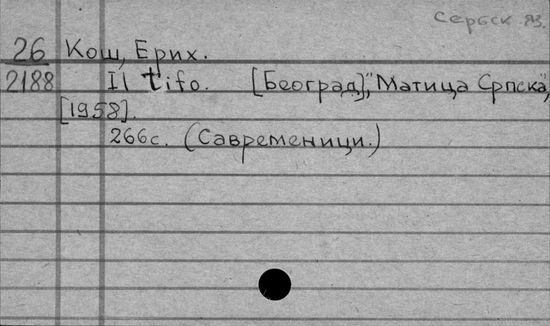 Сербск. яз.
26 Кош, Ерих.
2188 Il tifo. [Београд], "Матица Српска",
[1958].
266с. (Савременици.)